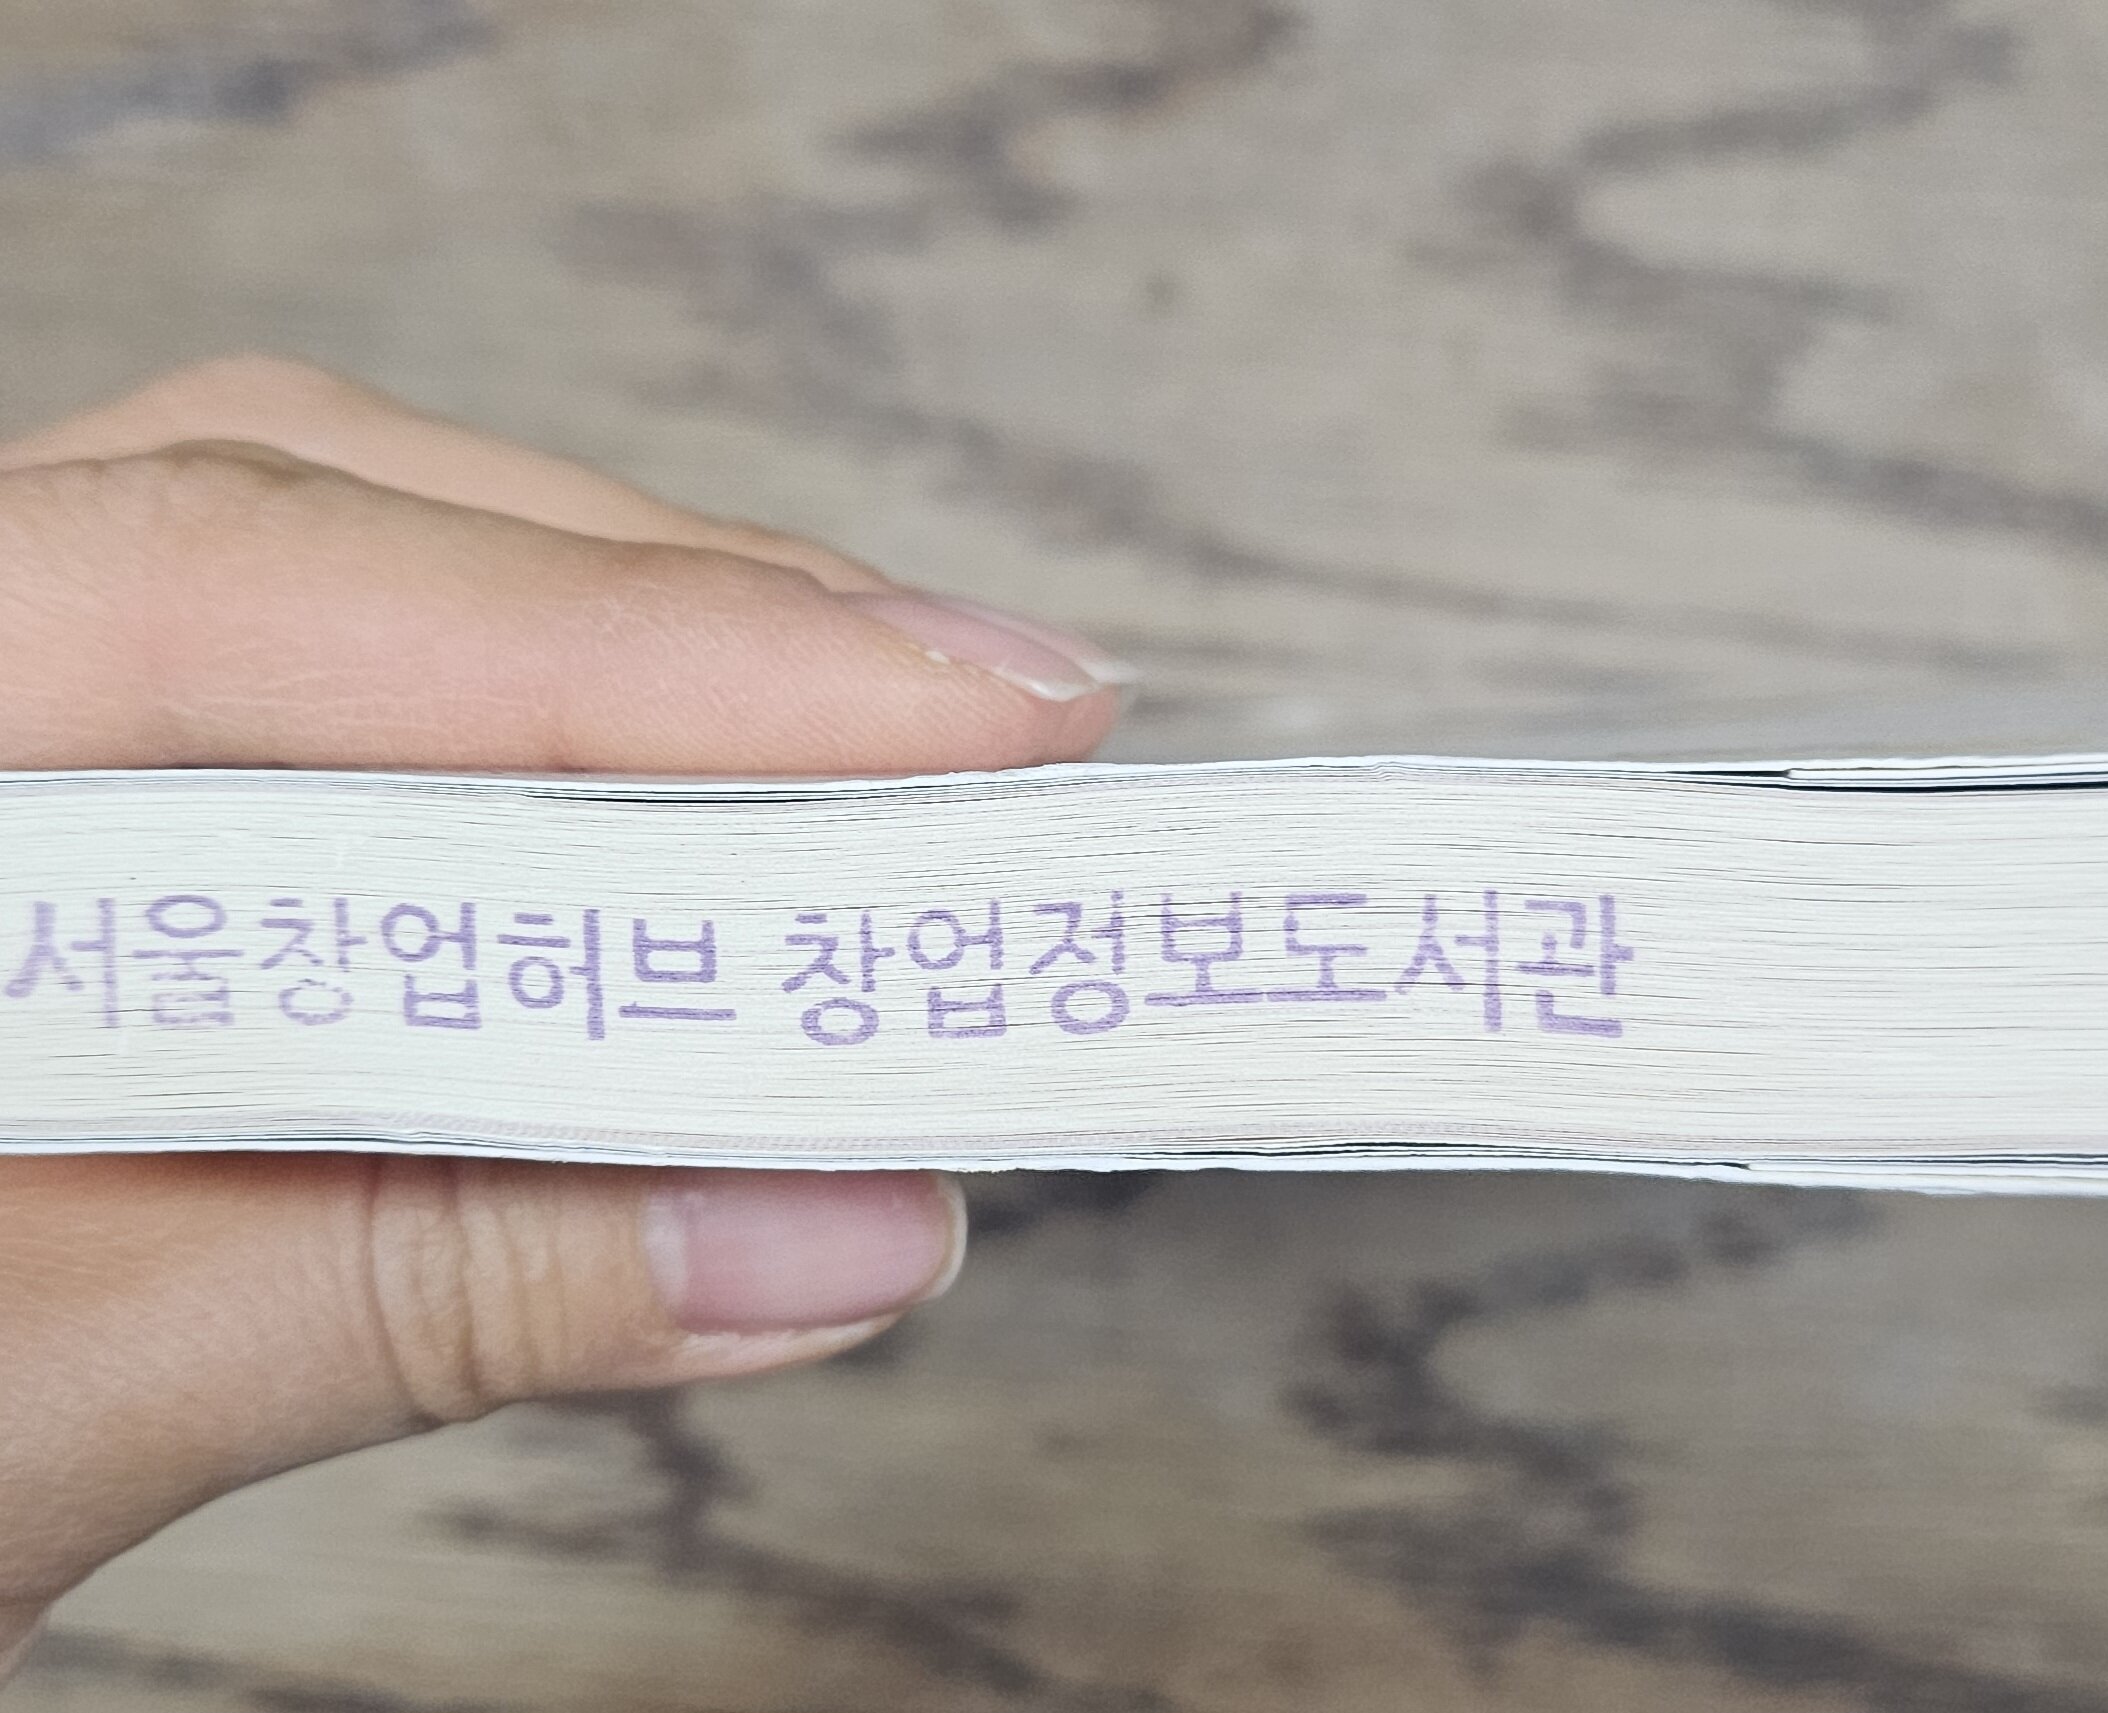 서울창업허브 창업정보도서관